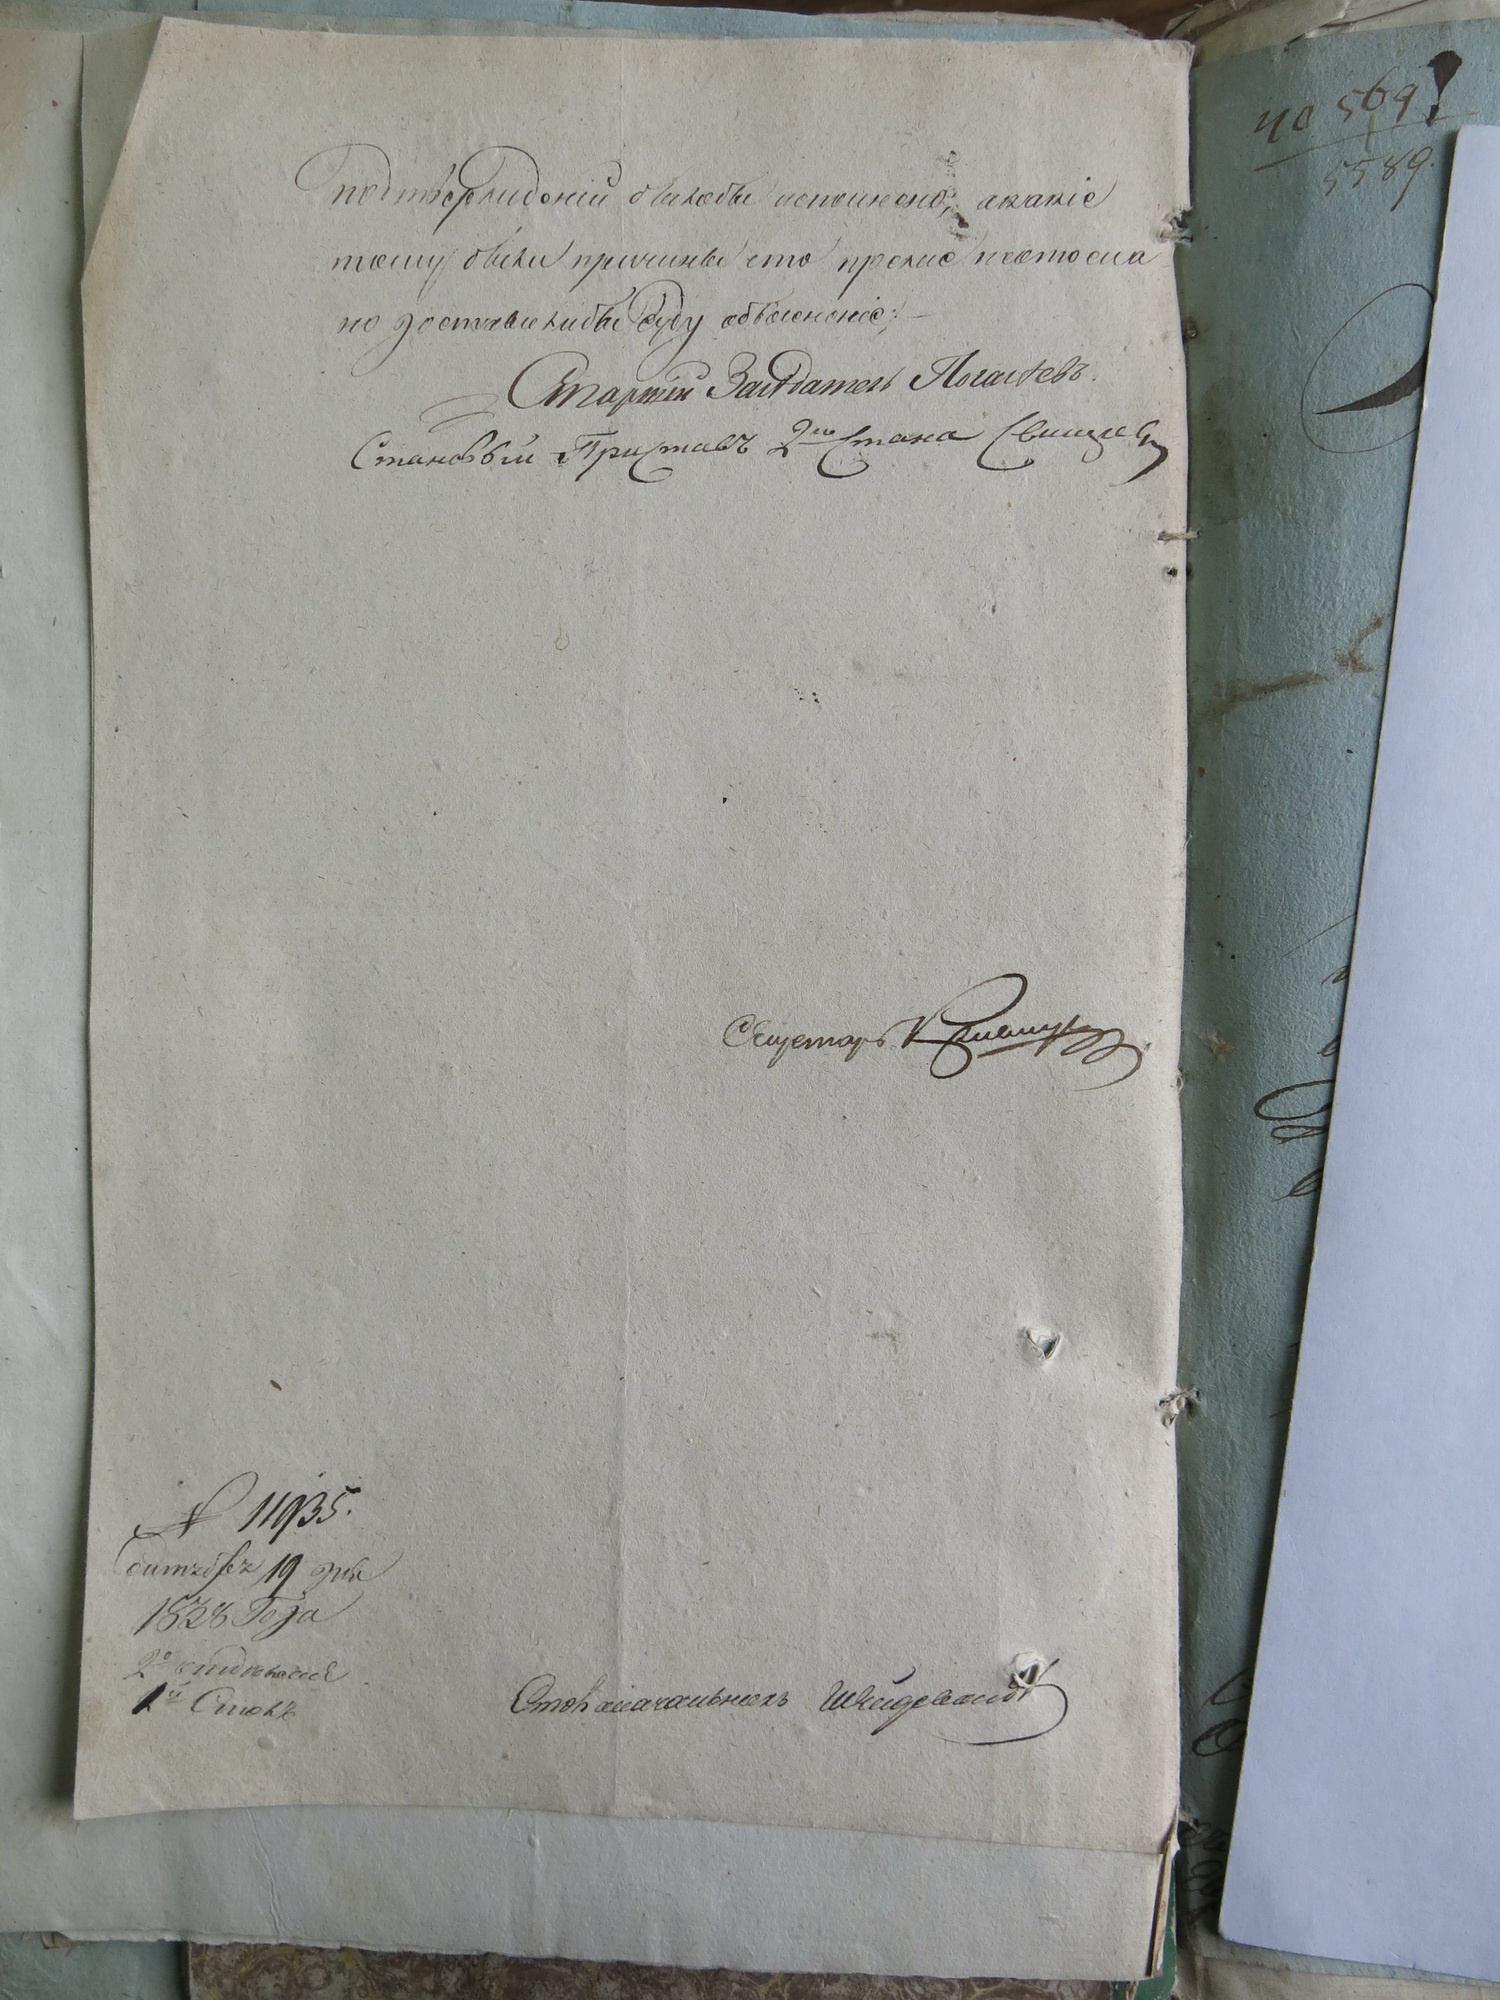 подтверждоній былобы исполнено, акакіе
тому были причины ето прежде неотослано
но доставилибы суду объясненіе;
Старшій Засѣдатель
Становой Приставъ 2го Стана
Секретарь
№ 11935.
октября 19 дня
1838 Года
2е отделение
1й Столъ
Столоначальникъ
но 569
5589.